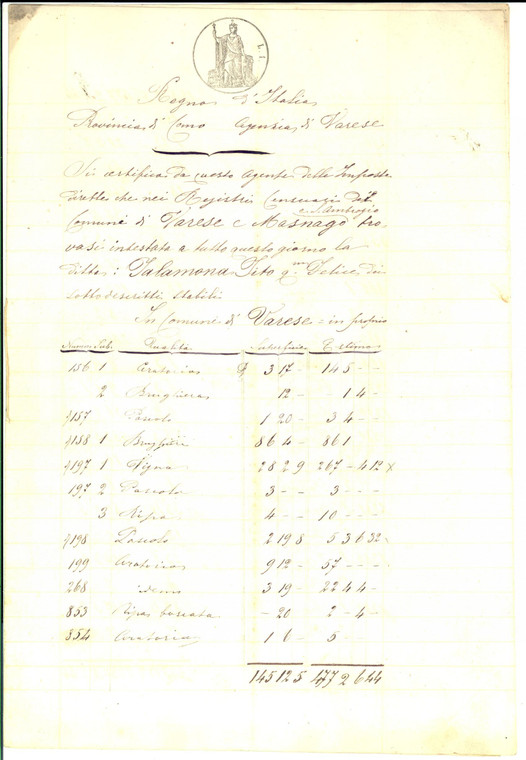 L. 1.
Regno d'Italia
Provincia di Como Agenzia di Varese
Si certifica da questo Agente delle Imposte
dirette che nei Registri Censuarj del
e S. Ambrogio
Comuni di Varese e Masnago tro-
vasi intestata a tutto questo giorno la
Ditta: Talamona Tito qm Felice, dei
sotto descritti stabili
In Comune di Varese = in proprio
Numeri Sub. Qualità Superficie Estimo
156 1 Aratorio 3 17 - 145 - -
2 Brughiera 12 - 1 4 -
9157 Pascolo 1 20 - 3 4 - -
9158 1 Brughiera 86 4 - 86 1
9197 1 Vigna 28 2 9 267 - 4 12 x
197 2 Pascolo 3 - - 3 - - -
3 Ripa 4 - - 10 - - -
9198 Pascolo 2 19 8 5 3 6 32
199 Aratorio 9 12 - 57 - - -
268 idem 3 19 - 22 4 4 -
853 Ripa boscata - 20 2 - 4 -
854 Aratorio 1 6 - 5 - -
145 12 5 477 2 6 44